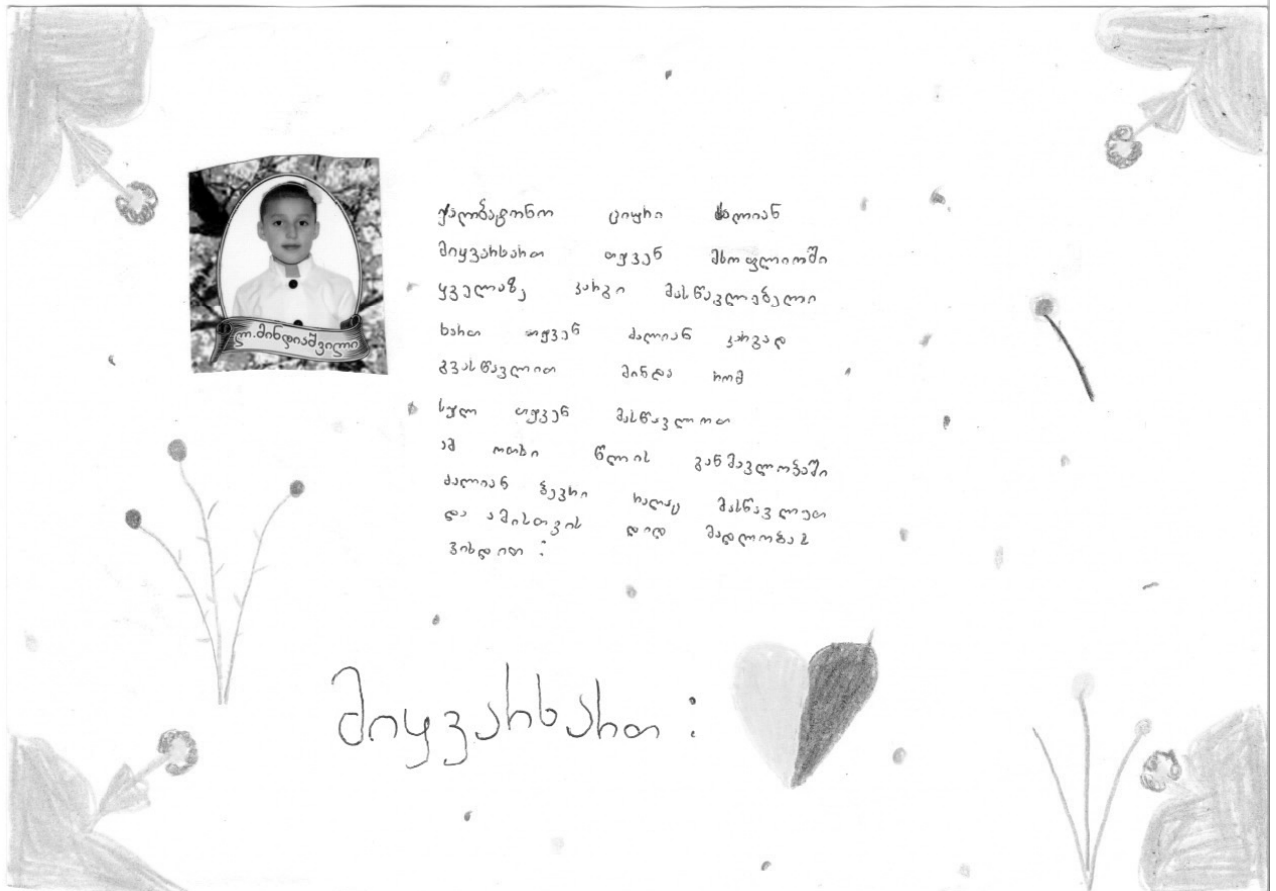 ლ.მინდიაშვილი
ქალბატონო ციური ძალიან
მიყვარხართ თქვენ მსოფლიოში
ყველაზე კარგი მასწავლებელი
ხართ თქვენ ძალიან კარგად
გვასწავლით მინდა რომ
სულ თქვენ მასწავლოთ
ამ ოთხი წლის განმავლობაში
ძალიან ბევრი რაღაც მასწავლეთ
და ამისთვის დიდ მადლობას
ვიხდით :
მიყვარხართ :